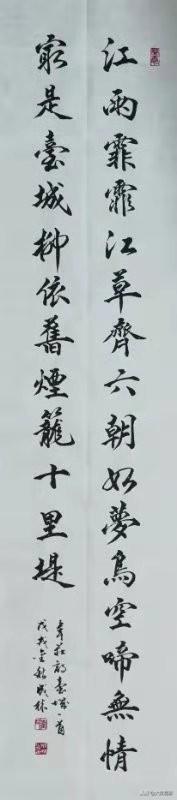 江雨霏霏江草齊六朝如夢鳥空啼無情
最是臺城柳依舊煙籠十里堤
韋莊詩臺城一首
戊戌金秋成林